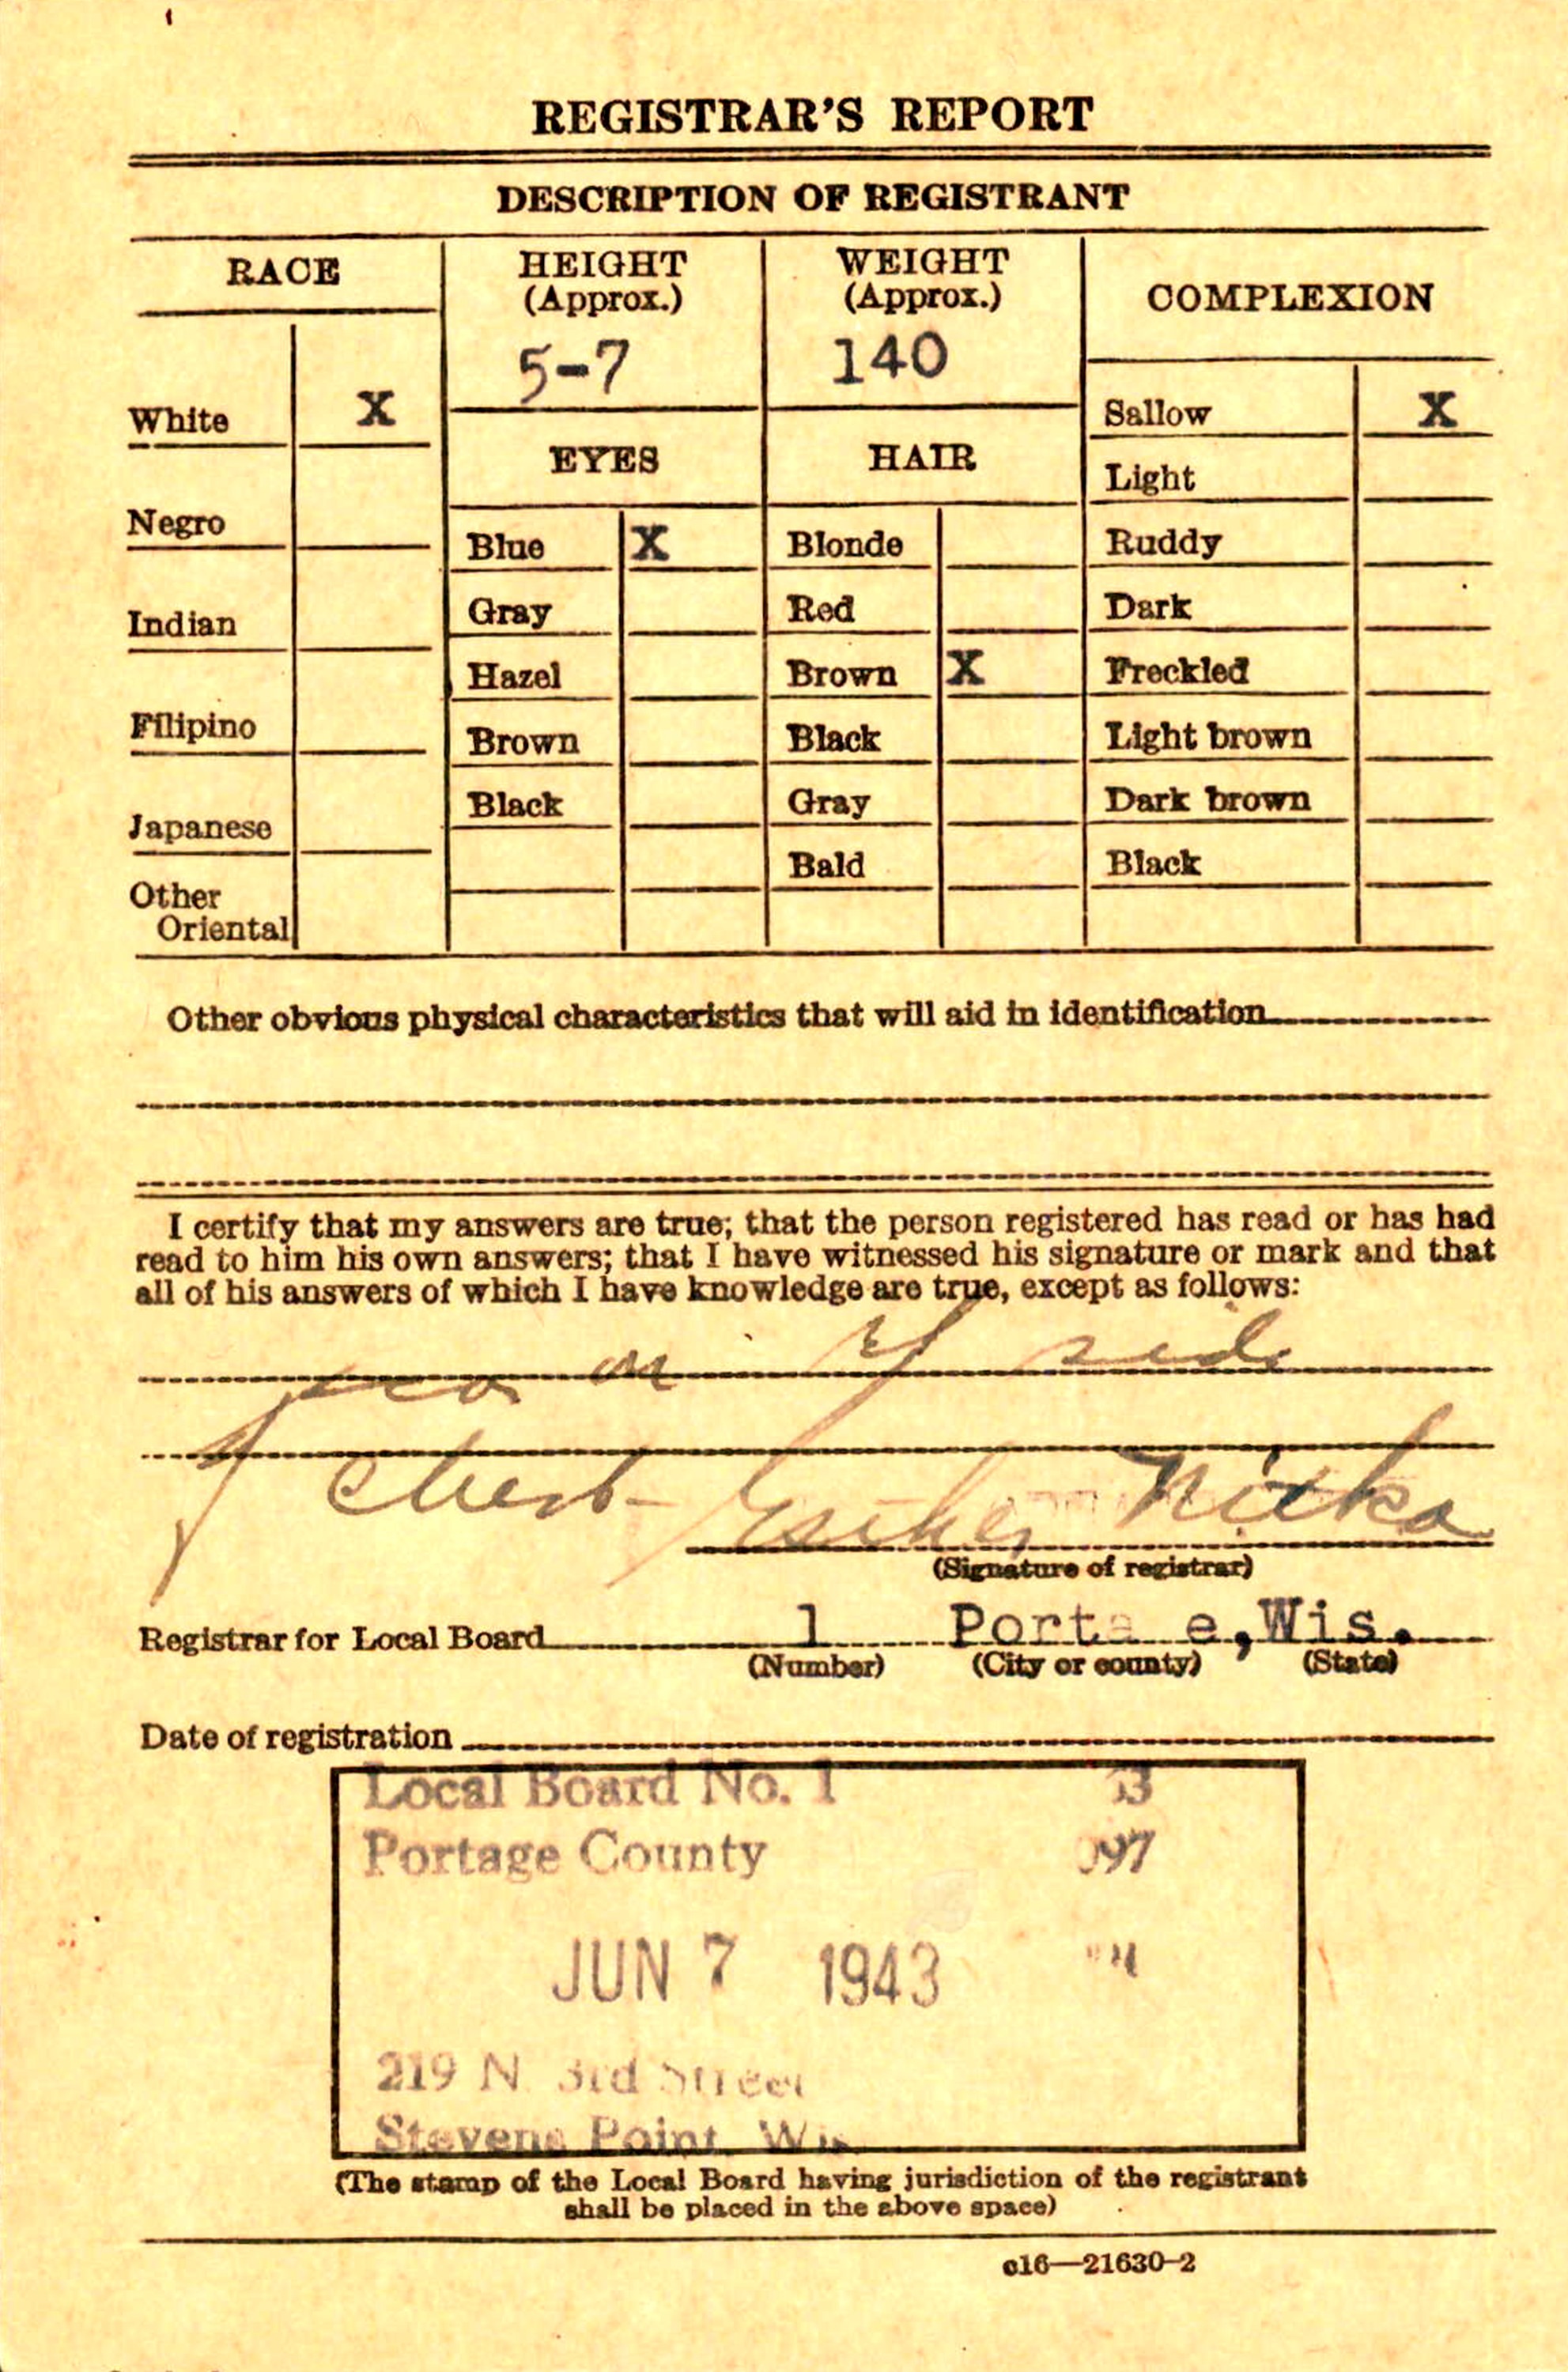 REGISTRAR'S REPORT
DESCRIPTION OF REGISTRANT
RACE
HEIGHT
(Approx.)
5-7
WEIGHT
(Approx.)
140
COMPLEXION
White X
Negro
Indian
Filipino
Japanese
Other
Oriental
EYES
Blue X
Gray
Hazel
Brown
Black
HAIR
Blonde
Red
Brown X
Black
Gray
Bald
Sallow X
Light
Ruddy
Dark
Freckled
Light brown
Dark brown
Black
Other obvious physical characteristics that will aid in identification
I certify that my answers are true; that the person registered has read or has had
read to him his own answers; that I have witnessed his signature or mark and that
all of his answers of which I have knowledge are true, except as follows:
on side
Nitka
(Signature of registrar)
Registrar for Local Board 1 Porta e, Wis.
(Number) (City or county) (State)
Date of registration
Local Board No. 1 3
Portage County 97
JUN 7 1943
219 N 3rd Street
Stevens Point, Wis
(The stamp of the Local Board having jurisdiction of the registrant
shall be placed in the above space)
c16—21630-2